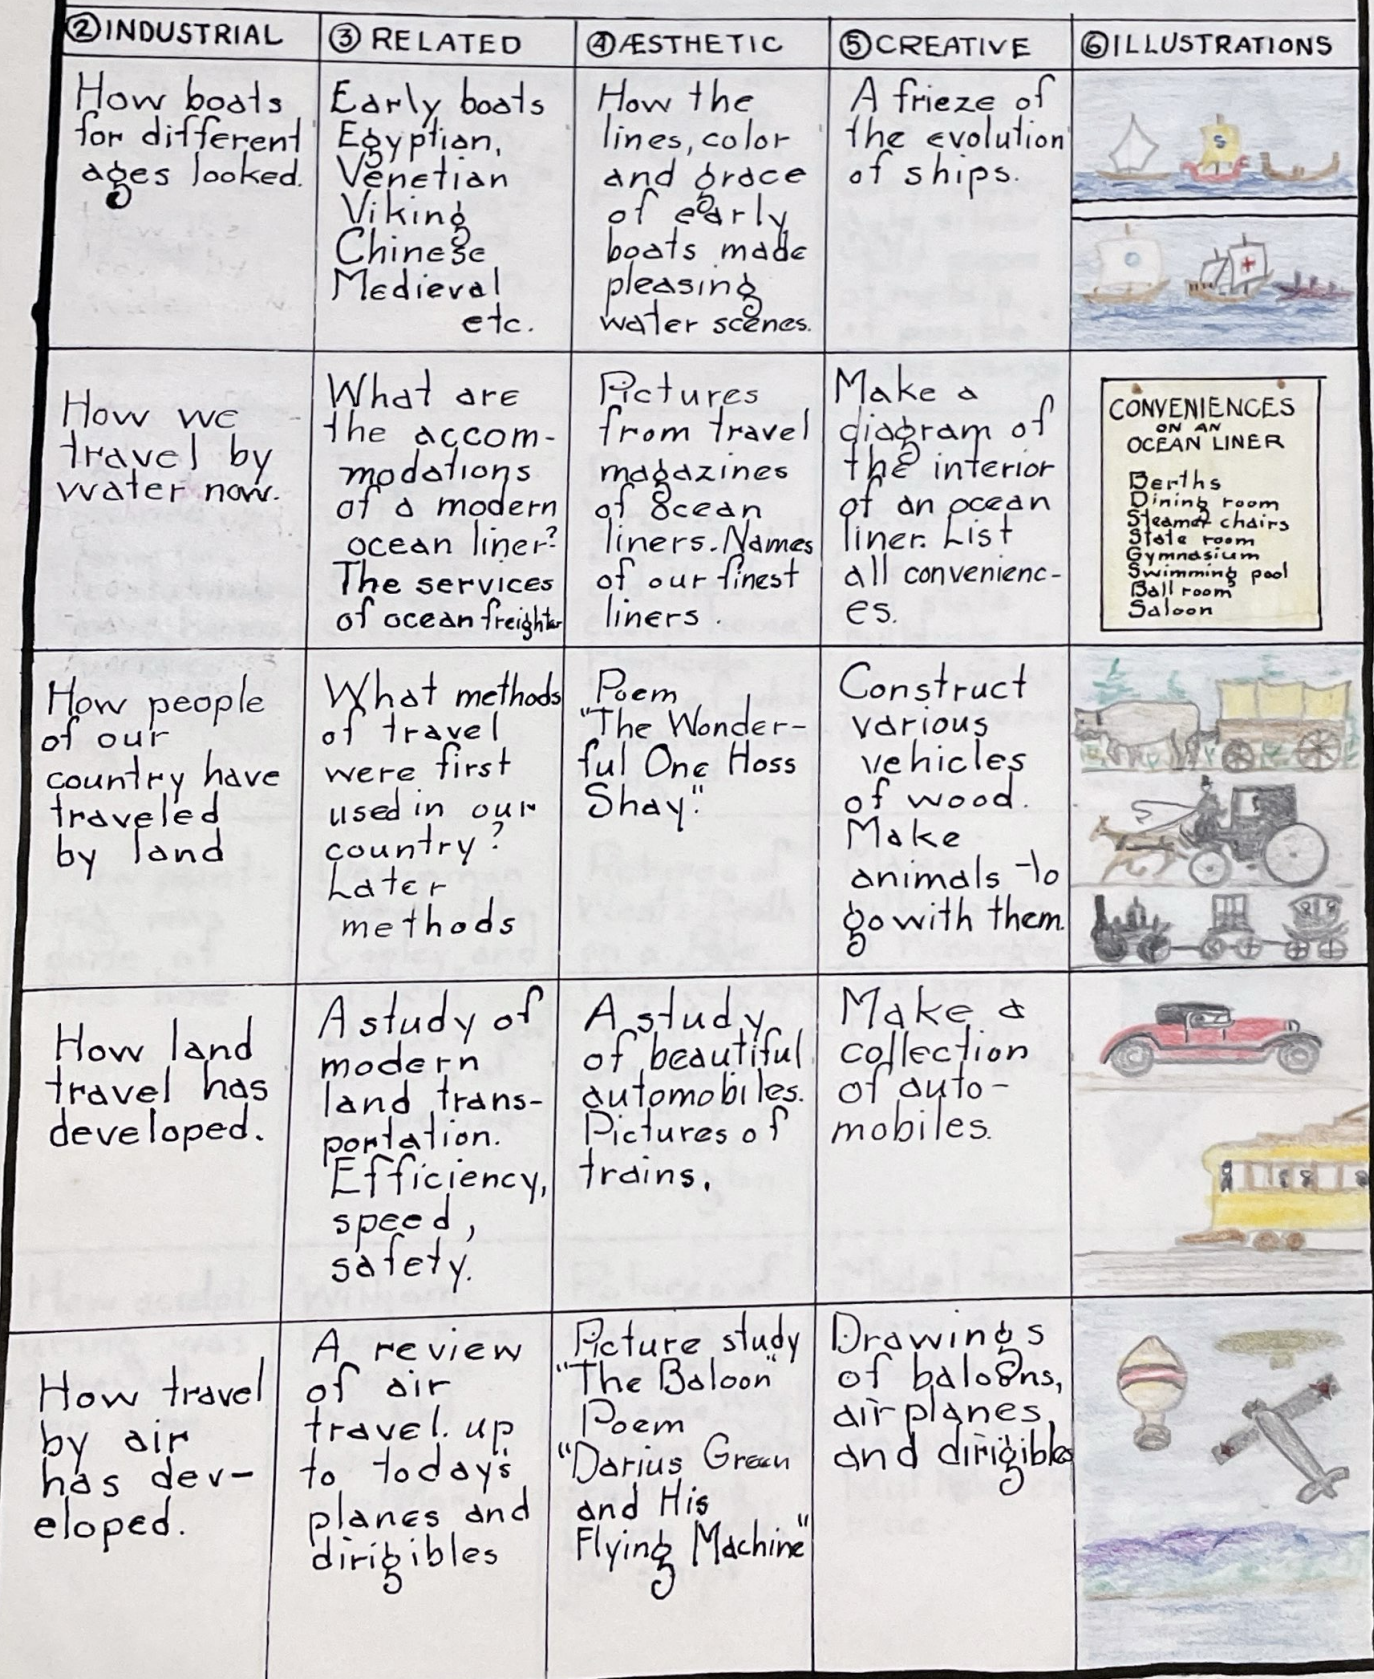 ② INDUSTRIAL
③ RELATED
④ ÆSTHETIC
⑤ CREATIVE
⑥ ILLUSTRATIONS
How boats
for different
ages looked.
Early boats
Egyptian,
Venetian
Viking
Chinese
Medieval
etc.
How the
lines, color
and grace
of early
boats made
pleasing
water scenes.
A frieze of
the evolution
of ships.
How we
travel by
water now.
What are
the accom-
modations
of a modern
ocean liner?
The services
of ocean freighter
Pictures
from travel
magazines
of ocean
liners. Names
of our finest
liners.
Make a
diagram of
the interior
of an ocean
liner. List
all convenienc-
es.
CONVENIENCES
ON AN
OCEAN LINER
Berths
Dining room
Steamer chairs
State room
Gymnasium
Swimming pool
Ball room
Saloon
How people
of our
country have
traveled
by land
What methods
of travel
were first
used in our
country?
Later
methods
Poem
"The Wonder-
ful One Hoss
Shay".
Construct
various
vehicles
of wood.
Make
animals to
go with them.
How land
travel has
developed.
A study of
modern
land trans-
portation.
Efficiency,
speed,
safety.
A study
of beautiful
automobiles.
Pictures of
trains.
Make a
collection
of auto-
mobiles.
How travel
by air
has dev-
eloped.
A review
of air
travel. up
to today's
planes and
dirigibles
Picture study
"The Baloon"
Poem
"Darius Green
and His
Flying Machine"
Drawings
of baloons,
airplanes,
and dirigibles